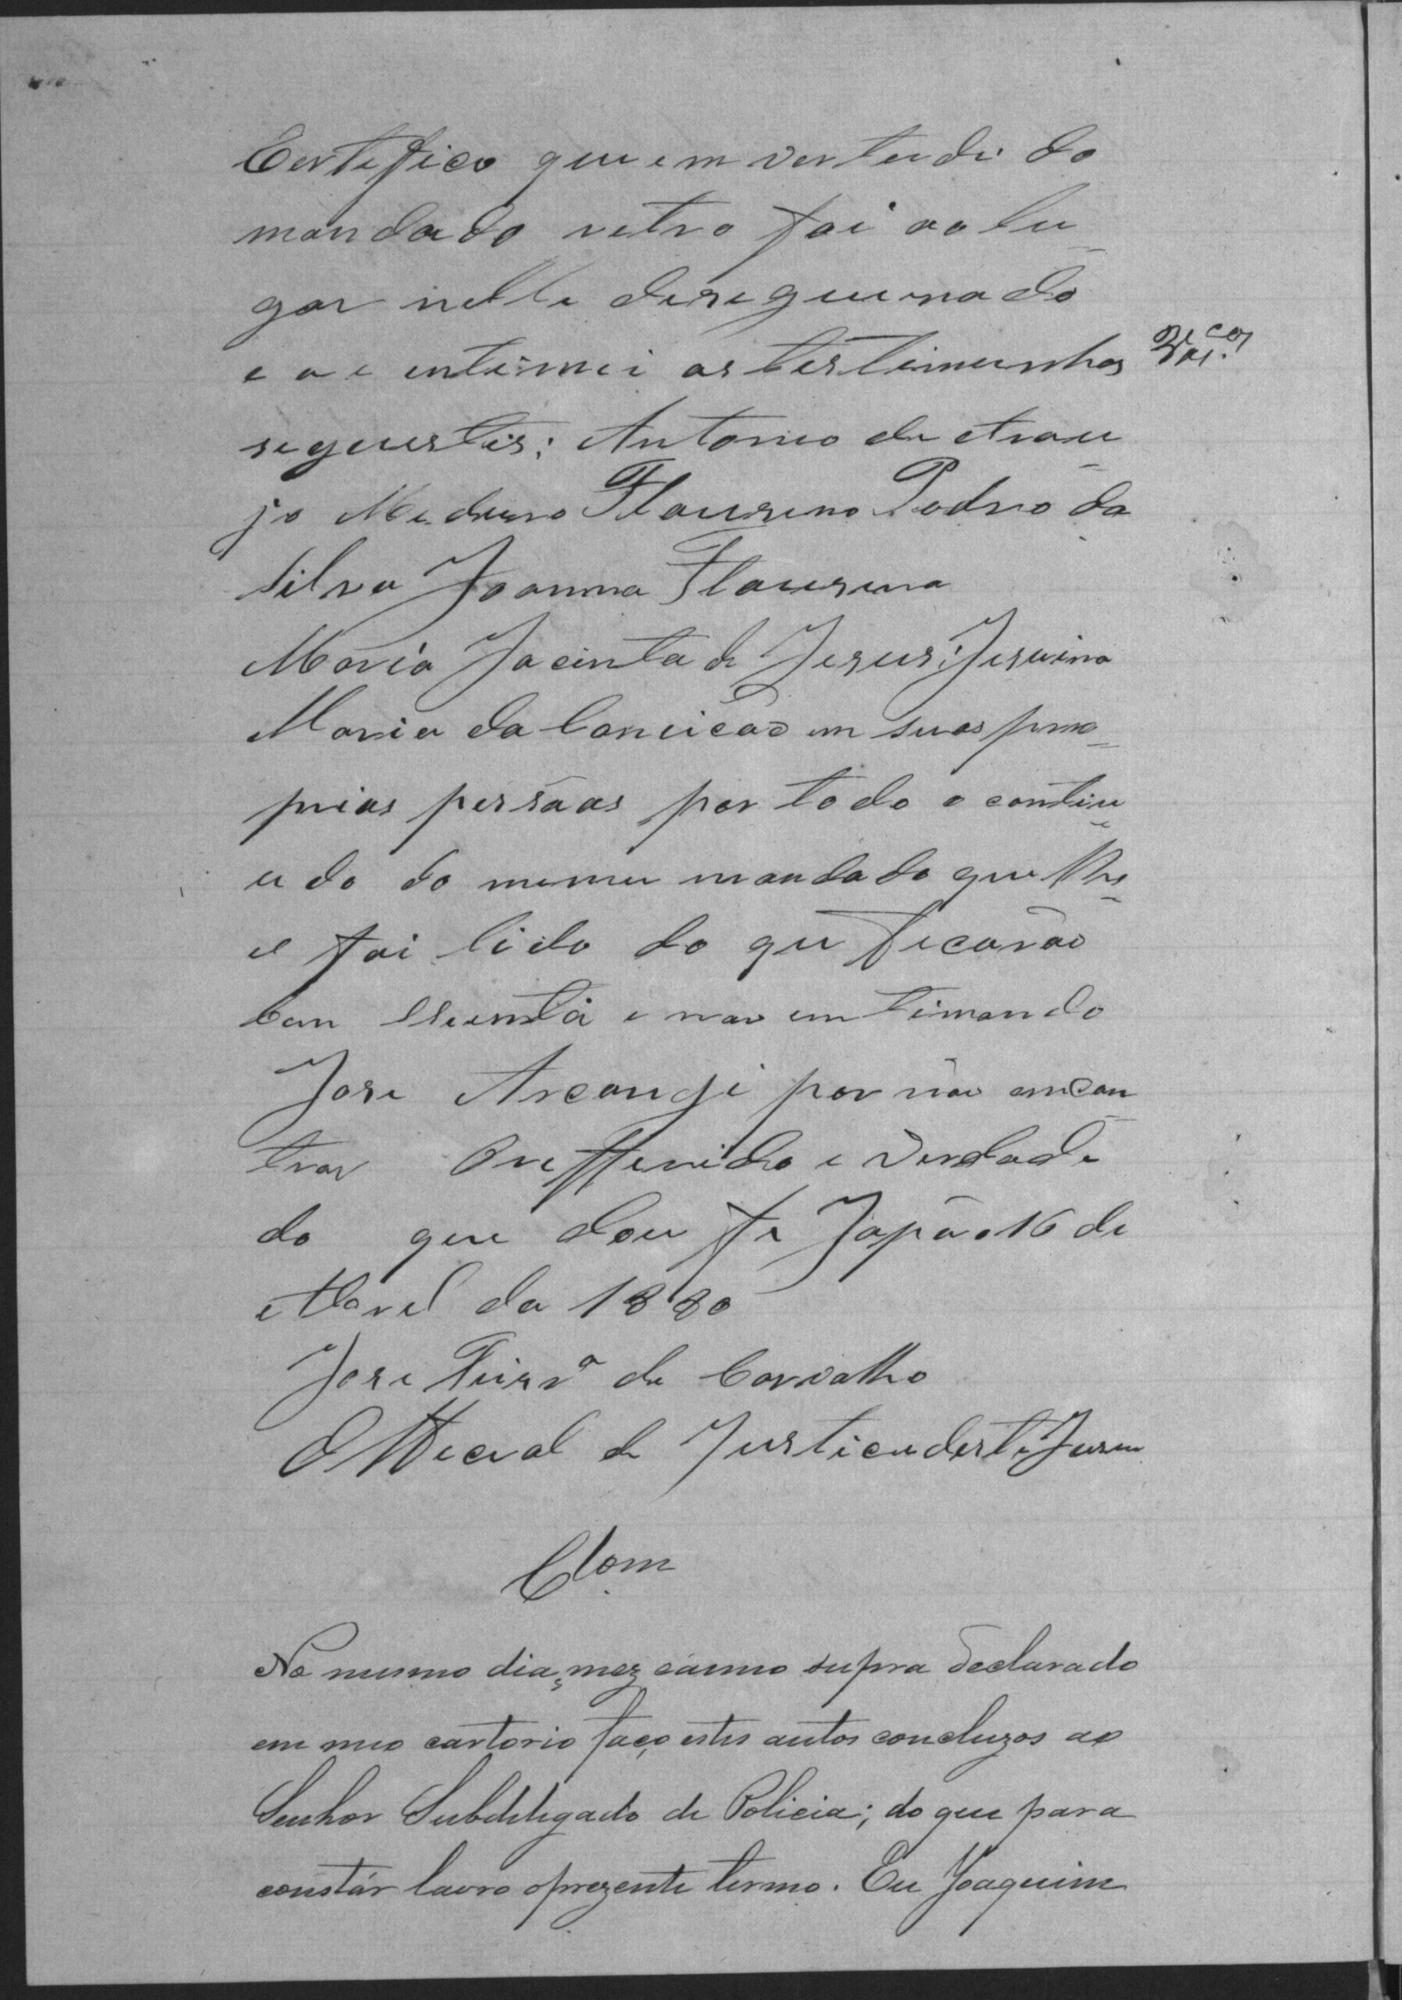 Certefico que em vertude do
mandado retro foi ao lu-
gar nelle deseguinado
e ae intimei as testimunhas
seguentes: Antonio de Arau-
jo Medeiro Flausino Pedro da
Silva Joanna Flausina
Maria Jacinta de Jesus; Jesuina
Maria da Conceicão em suas pro-
prias persoas por todo o contiu-
u do do mesmu mandado que lhe
e foi lido do que ficarão
ben Scienta e nao entimando
Jose Arcange por não encon-
trar O reffirido e verdade
do que dou fe Japão 16 de
Abrel da 1880
José Feirrª de Carvalho
Offecial de Justica deste Juiso
Clsm
No mesmo dia, mez e anno supra declarado
em meo cartorio faço estes autos concluzos ao
Senhor Subdelegado de Policia; do que para
constár lavro o prezente termo. Eu Joaquim